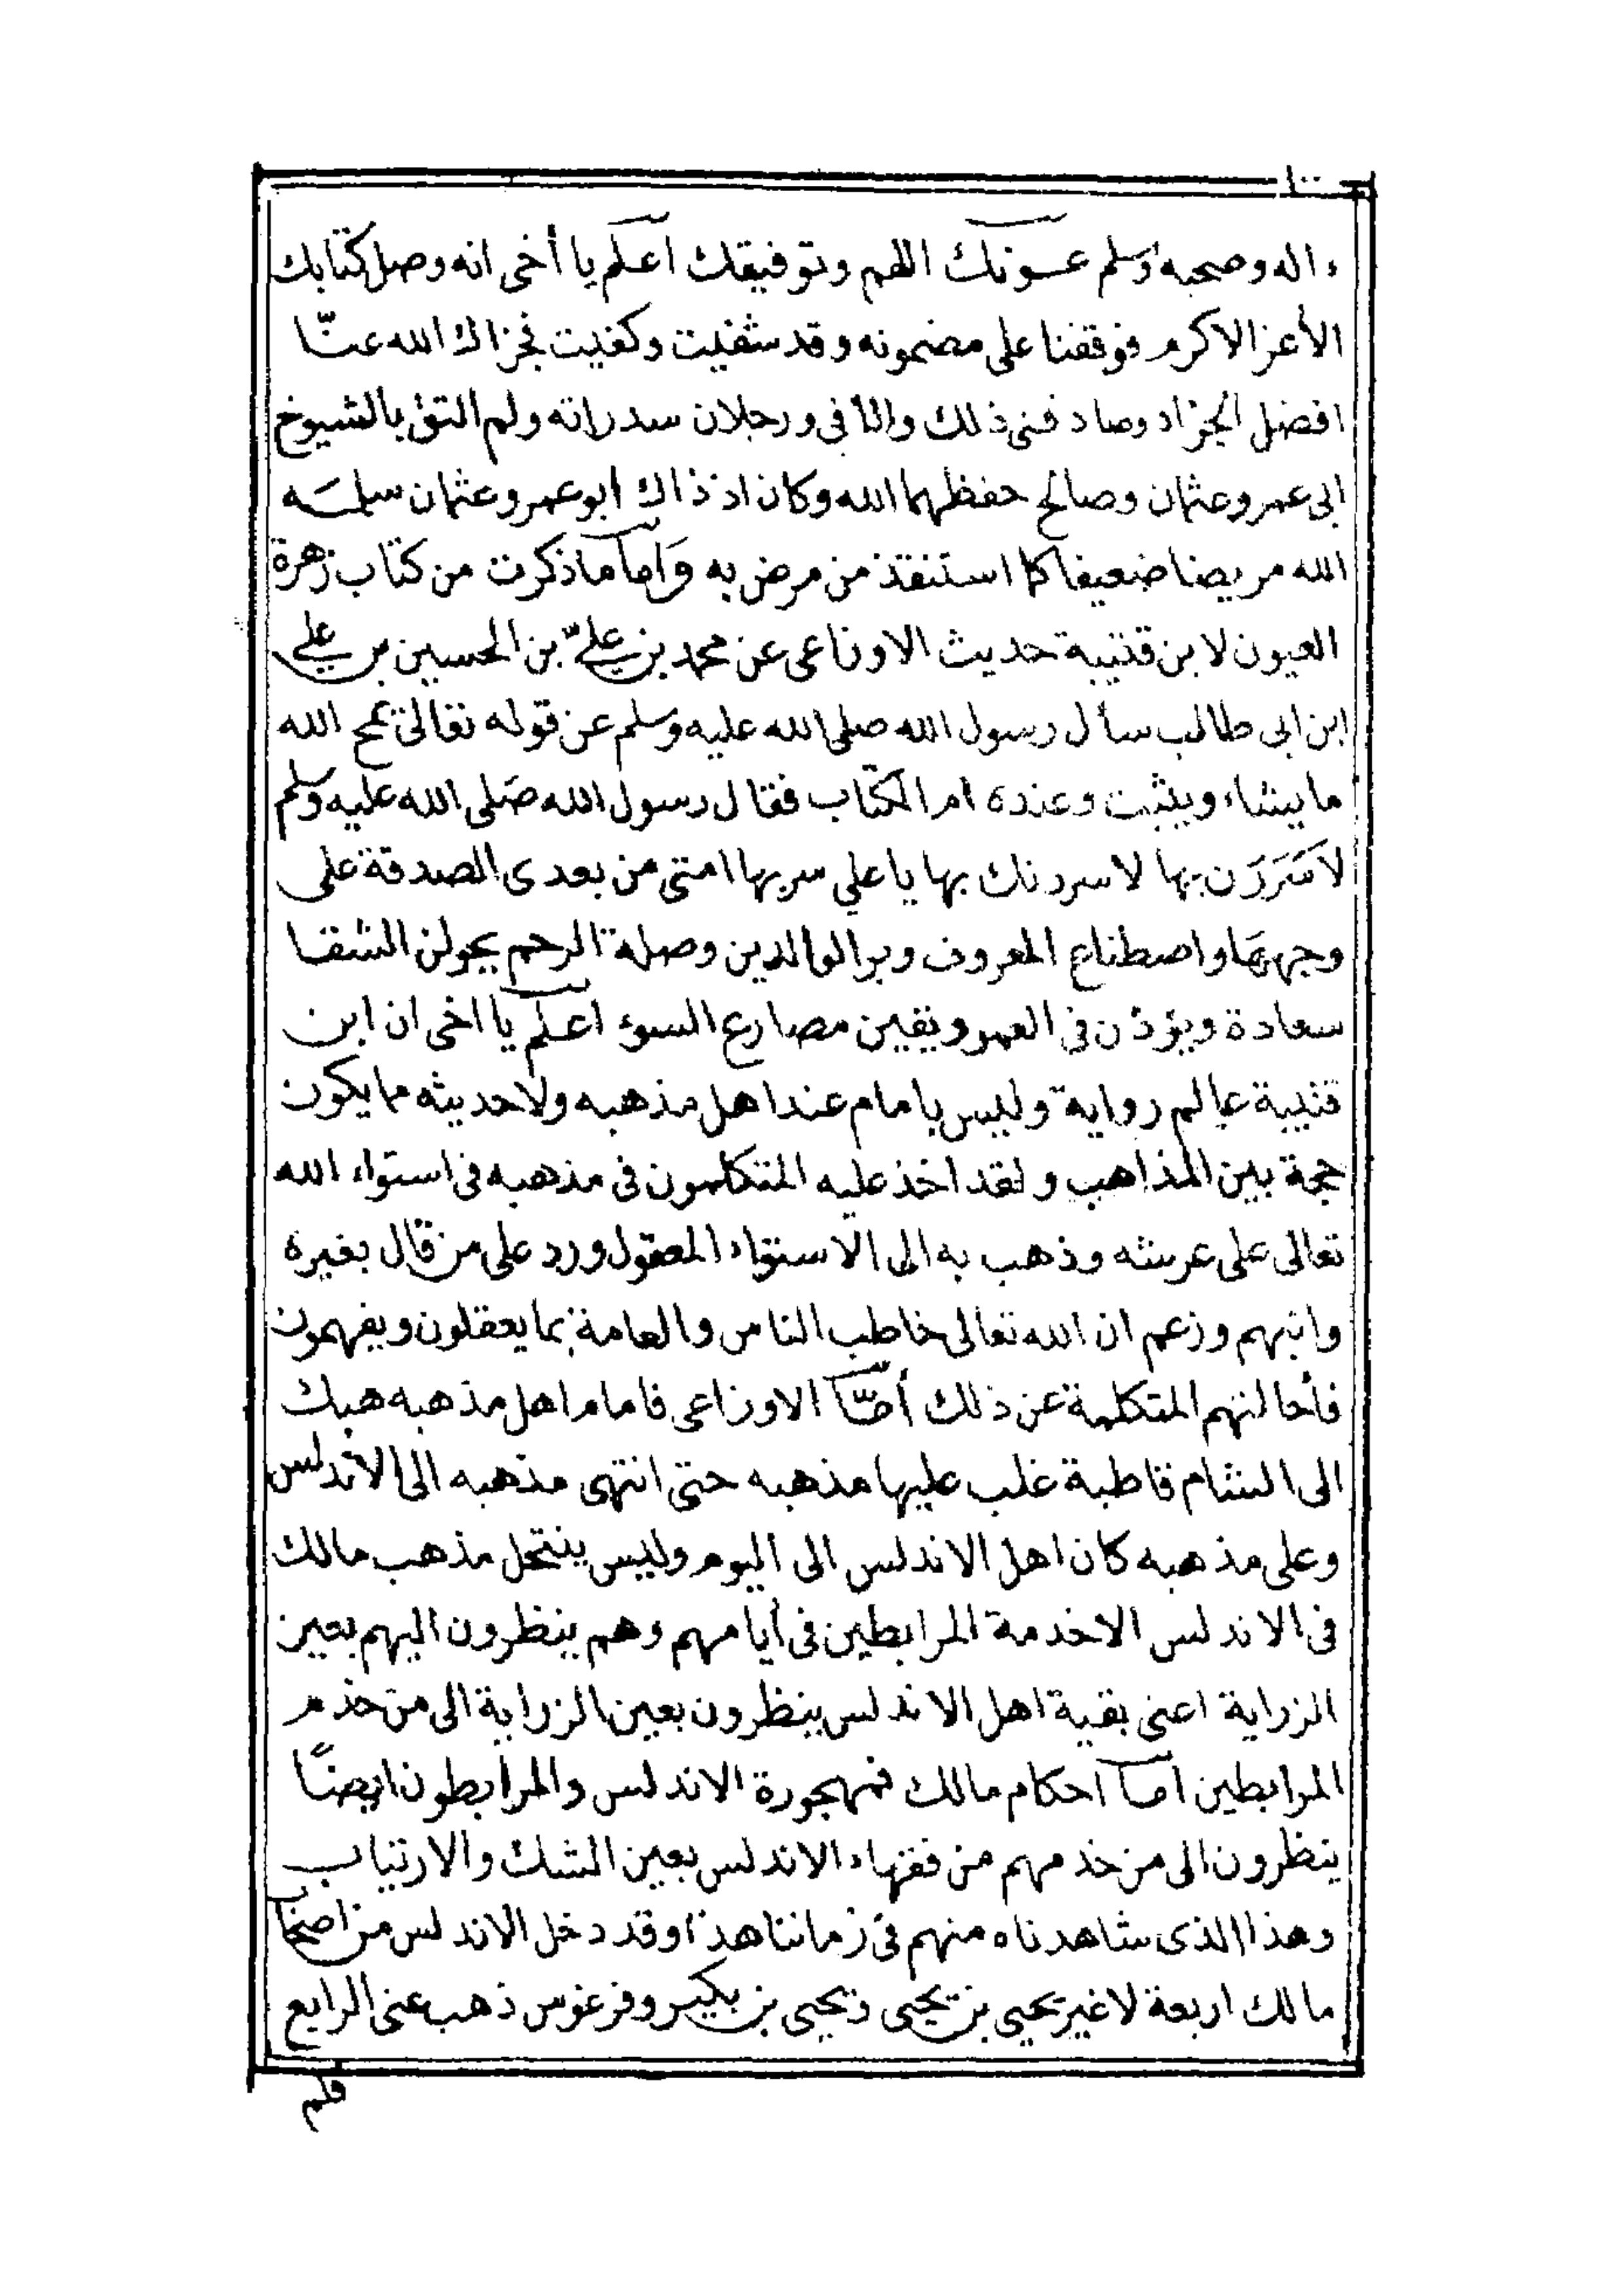 ١٠٠
واله وصحبه وسلم عونك اللهم وتوفيقك اعلم يا أخى انه وصل كتابك
الأعز الاكرم فوقفنا على مضمونه وقد شفيت وكفيت فجزاك الله عنّا
افضل الجزاء وصادفنى ذلك وانا فى ورجلان سدراته ولم التق بالشيوخ
ابى عمر وعثمان وصالح حفظهما الله وكان اذ ذاك ابو عمر وعثمان سلمَه
الله مريضا ضعيفا كما استنقذ من مرض به وَاما ما ذكرت من كتاب زهرة
العيون لابن قتيبة حديث الاوزاعى عن محمد بن علىّ بن الحسين بن على
ابن ابى طالب سأل رسول الله صلى الله عليه وسلم عن قوله تعالى يمح الله
ما يشاء ويثبت وعنده ام الكتاب فقال رسول الله صَلى الله عَليه وَسلم
لاسررن بها لاسرنك بها يا علي سر بها امتى من بعدى الصدقة على
وجههَا واصطناع المعروف وبر الوالدين وصلة الرحم يحولن الشقا
سعادة ويزدن فى العمر ويقين مصارع السوء اعلم يا اخى ان ابن
قتيبة عالم رواية وليس بامام عند اهل مذهبه ولا حديثه مما يكون
حجة بين المذاهب ولقد اخذ عليه المتكلمون فى مذهبه فى استواء الله
تعالى على عرشه وذهب به الى الاستواء المعقول ورد على من قال بغيره
واتهم وزعم ان الله تعالى خاطب الناس والعامة بما يعقلون ويفهمون
فأحالتهم المتكلمة عن ذلك أمّا الاوزاعى فامام اهل مذهبه هبك
الى الشام قاطبة غلب عليها مذهبه حتى انتهى مذهبه الى الاندلس
وعلى مذهبه كان اهل الاندلس الى اليوم وليس ينتحل مذهب مالك
فى الاندلس الا خدمة المرابطين فى أيامهم وهم ينظرون اليهم بعين
الزراية اعنى بقية اهل الاندلس ينظرون بعين الزراية الى من خدم
المرابطين اما احكام مالك فمهجورة الاندلس والمرابطون ايضًا
ينظرون الى من خدمهم من فقهاء الاندلس بعين الشك والارتياب
وهذا الذى شاهدناه منهم فى زماننا هذا وقد دخل الاندلس من اصحاب
مالك اربعة لا غير يحيى بن يحيى ويحيى بن بكير وفرغوس ذهب عنى الرابع
فلم